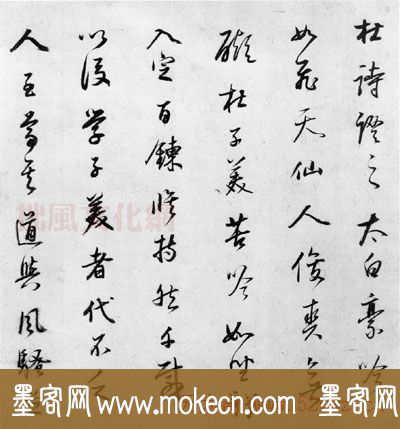 杜詩證之太白豪吟
如飛天仙人俊爽無
礙杜子美苦吟如坐
入定百鍊修持然千載
以後學子美者代不乏
人其道與風騷
墨客网www.mokecn.com墨客网